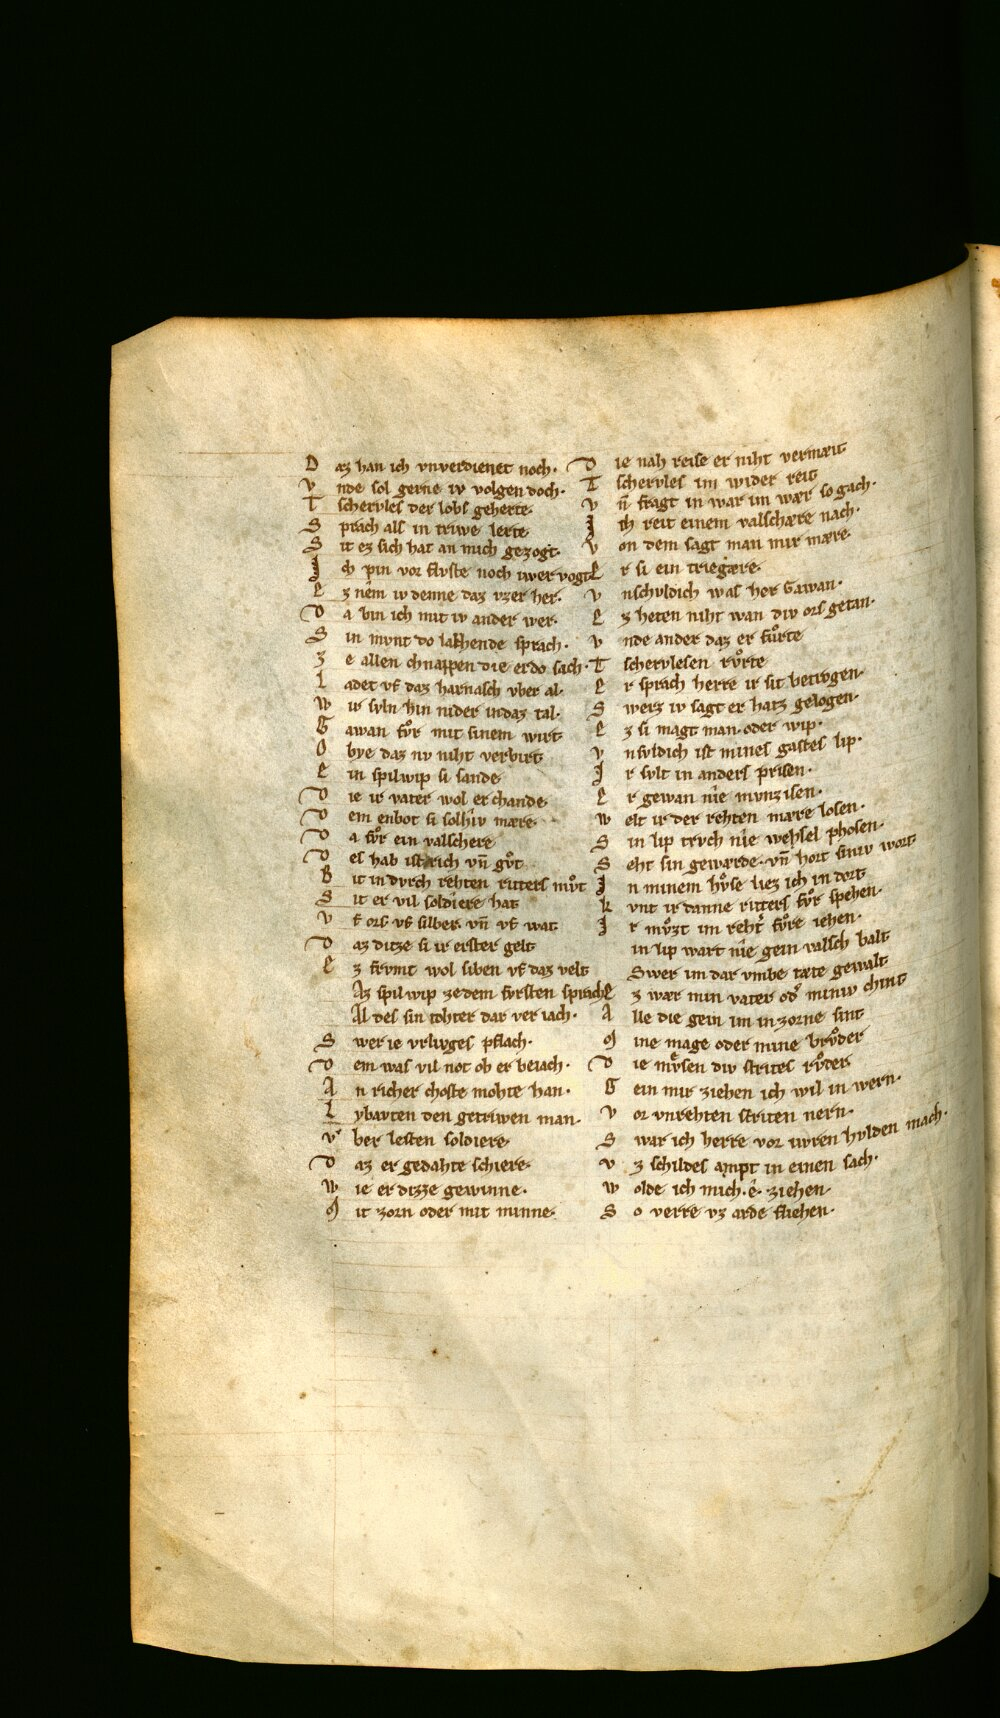 D az han ich vnverdienet noch.
v nde sol gerne iv volgen doch.
T schervles der lobs geherte.
S prach als in triwe lerte.
S it ez sich hat an mich gezogt.
J ch pin vor flvste noch iwer vogt.
E z nem iv denne daz vzer her.
D a bin ich mit iv ander wer.
S in mvnt do lachende sprach.
Z e allen chnappen die er do sach.
L adet vf daz harnasch vber al.
W ir svln hin nider in daz tal.
G awan fvͦr mit sinem wirt
O bye daz nv niht verbirt
E in spilwip si sande.
D ie ir vater wol erchande.
D em enbot si solhiv mære.
D a fvͦr ein valschere
D es hab ist rich vn̄ gvͦt
B it in dvrch rehten ritters mvͦt
S it er vil soldiere hat
V f ors vf silber. vn̄ vf wat
D az ditze si ir erster gelt
E z frvmt wol siben vf daz velt
Az spilwip ze dem fvrsten sprach.
Al des sin tohter dar veriach.
S wer ie vrlivges pflach.
D em was vil not ob er beiach.
A n richer choste mohte han.
L ybavten den getriwen man.
V ber lesten soldiere.
D az er gedahte schiere.
W ie er dizze gewinne.
M it zorn oder mit minne.
D ie nah reise er niht vermeit
T schervles im wider reit
V n̄ fragt in war im wær so gach.
J ch reit einem valschære nach.
V on dem sagt man mir mære.
E r si ein triegære.
V nschvldich was her Gawan.
E z heten niht wan div ors getan.
V nde ander daz er fvͦrte
T schervlesen rvͦrte
E r sprach herre ir sit betrogen.
S werz iv sagt er hatz gelogen.
E z si magt man. oder wip.
V nscvldich ist mines gastes lip.
J r svlt in anders prisen.
E r gewan nie mvnzisen.
W elt ir der rehten mære losen.
S in lip trvch nie wehsel phosen.
S eht sin gewærde. vn̄ hort siniv wort
J n minem hvͦse liez ich in dort
K vnt ir danne ritters fvͦr spehen.
J r mvͦzt im reht̓ fvͦre iehen.
in lip wart nie gein valsch balt
Swer im dar vmbe tæte gewalt
E z wær min vater od̓ miniv chint
A lle die gein im in zorne sint
M ine mage oder mine brvͦder
D ie mvͤsen div strites rvͦder
G ein mir ziehen ich wil in wern.
V or vnrehten striten nern.
S war ich herre vor iwren hvlden mach.
V z schildes ampt in einen sach.
W olde ich mich. ê. ziehen
S o verre vz arde fliehen.